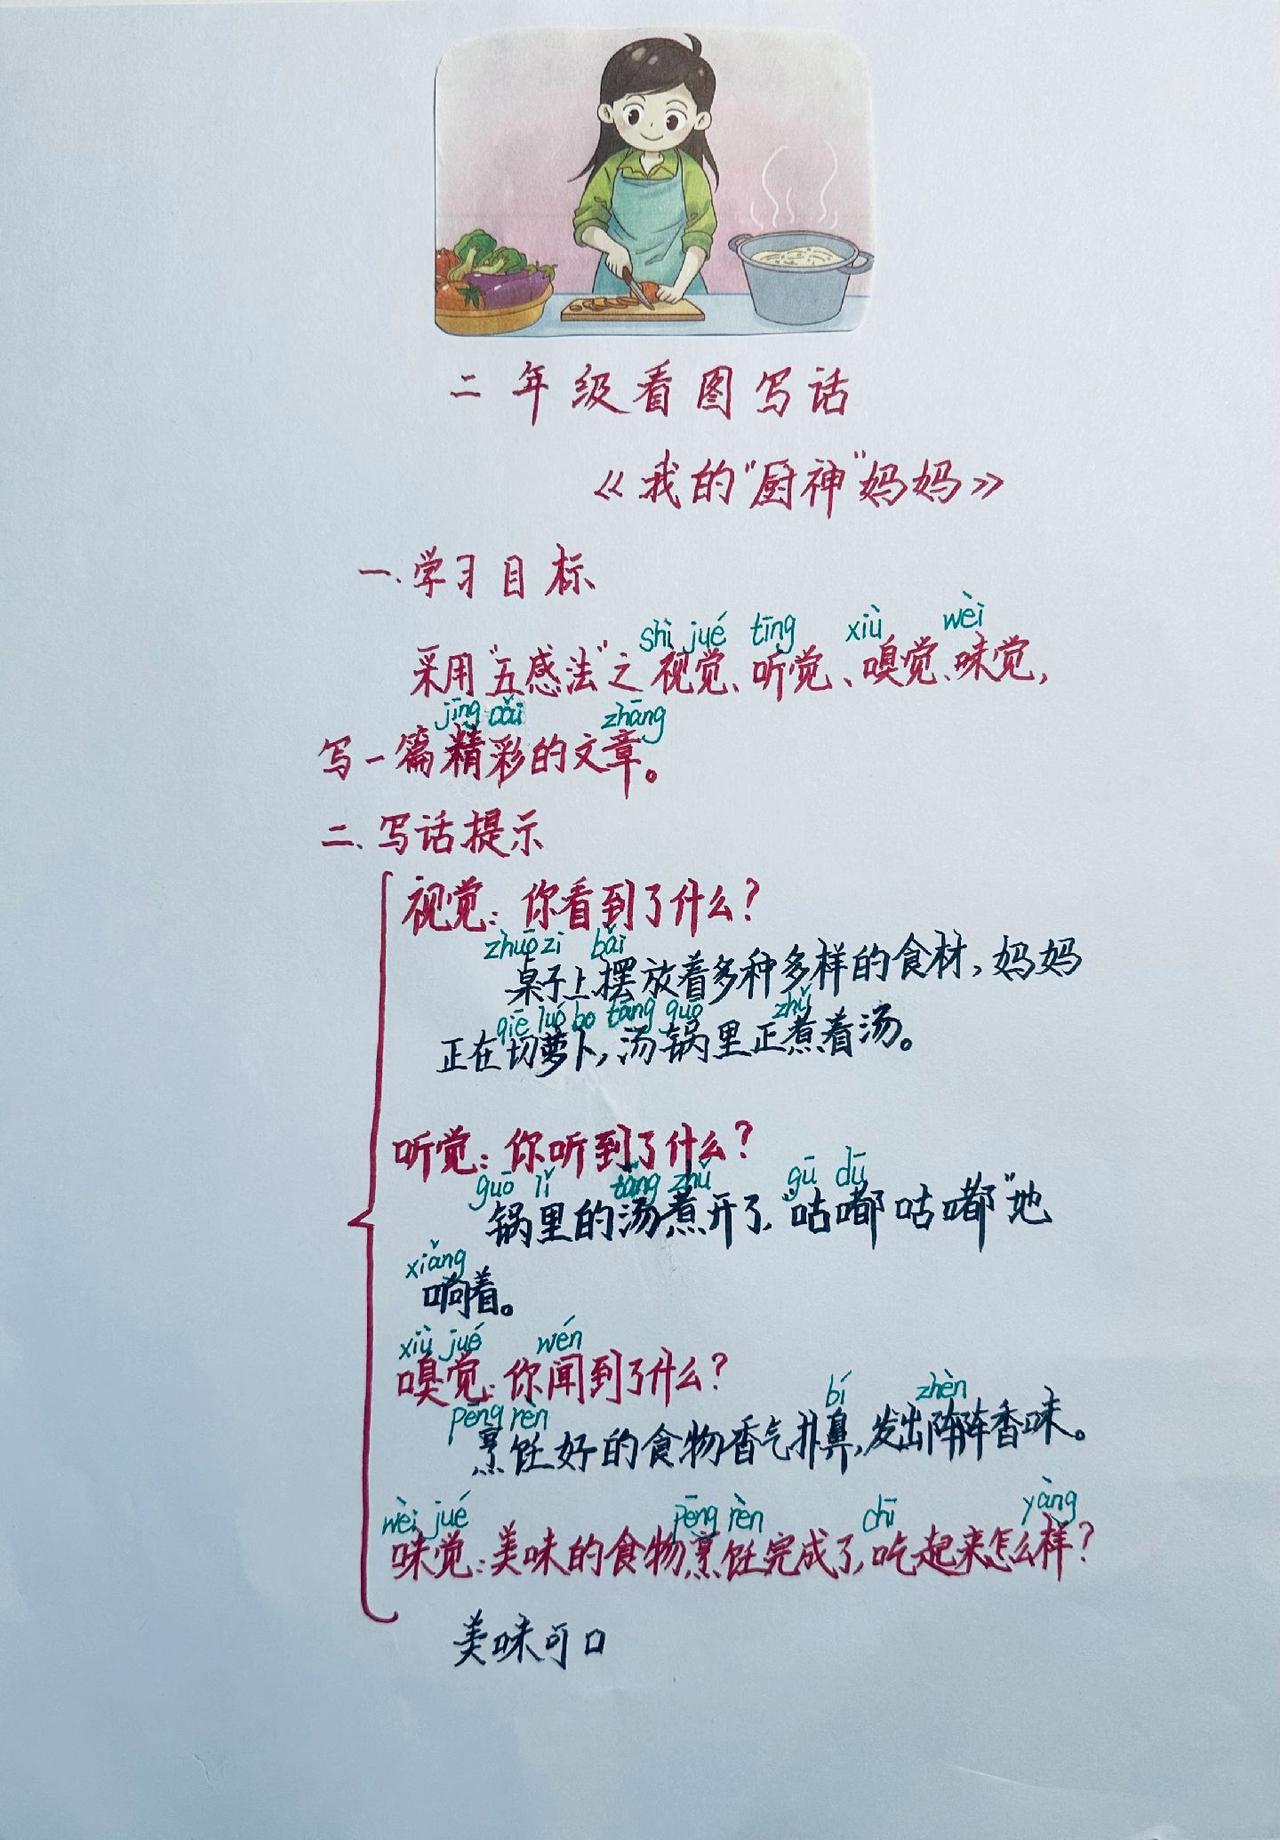 二年级看图写话
《我的"厨神"妈妈》
一.学习目标
shì jué tīng xiù wèi
采用"五感法"之视觉、听觉、嗅觉、味觉,
jīng cǎi zhāng
写一篇精彩的文章。
二、写话提示
视觉:你看到了什么?
zhuō zi bǎi
桌子上摆放着多种多样的食材,妈妈
qiē luó bo tāng guō zhǔ
正在切萝卜,汤锅里正煮着汤。
听觉:你听到了什么?
guō lǐ tāng zhǔ gū dū
锅里的汤煮开了,"咕嘟咕嘟"地
xiǎng
响着。
xiù jué wén
嗅觉:你闻到了什么?
pēng rèn bí zhèn
烹饪好的食物香气扑鼻,发出阵阵香味。
wèi jué pēng rèn chī yàng
味觉:美味的食物烹饪完成了,吃起来怎么样?
美味可口